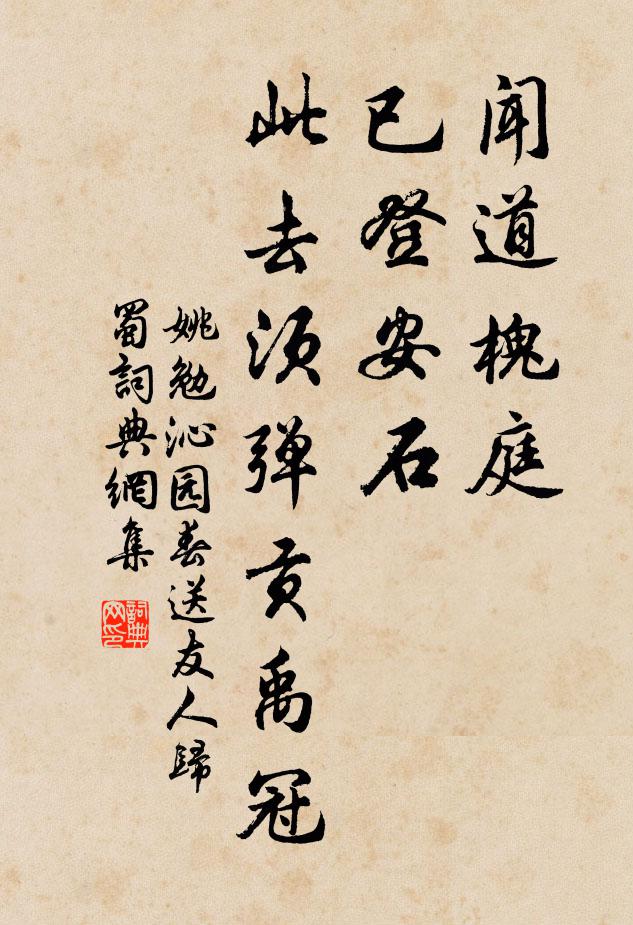 闻道槐庭
已登安石
此去须弹贡禹冠
姚勉沁园春送友人歸
蜀詞典網集
詞典
网印